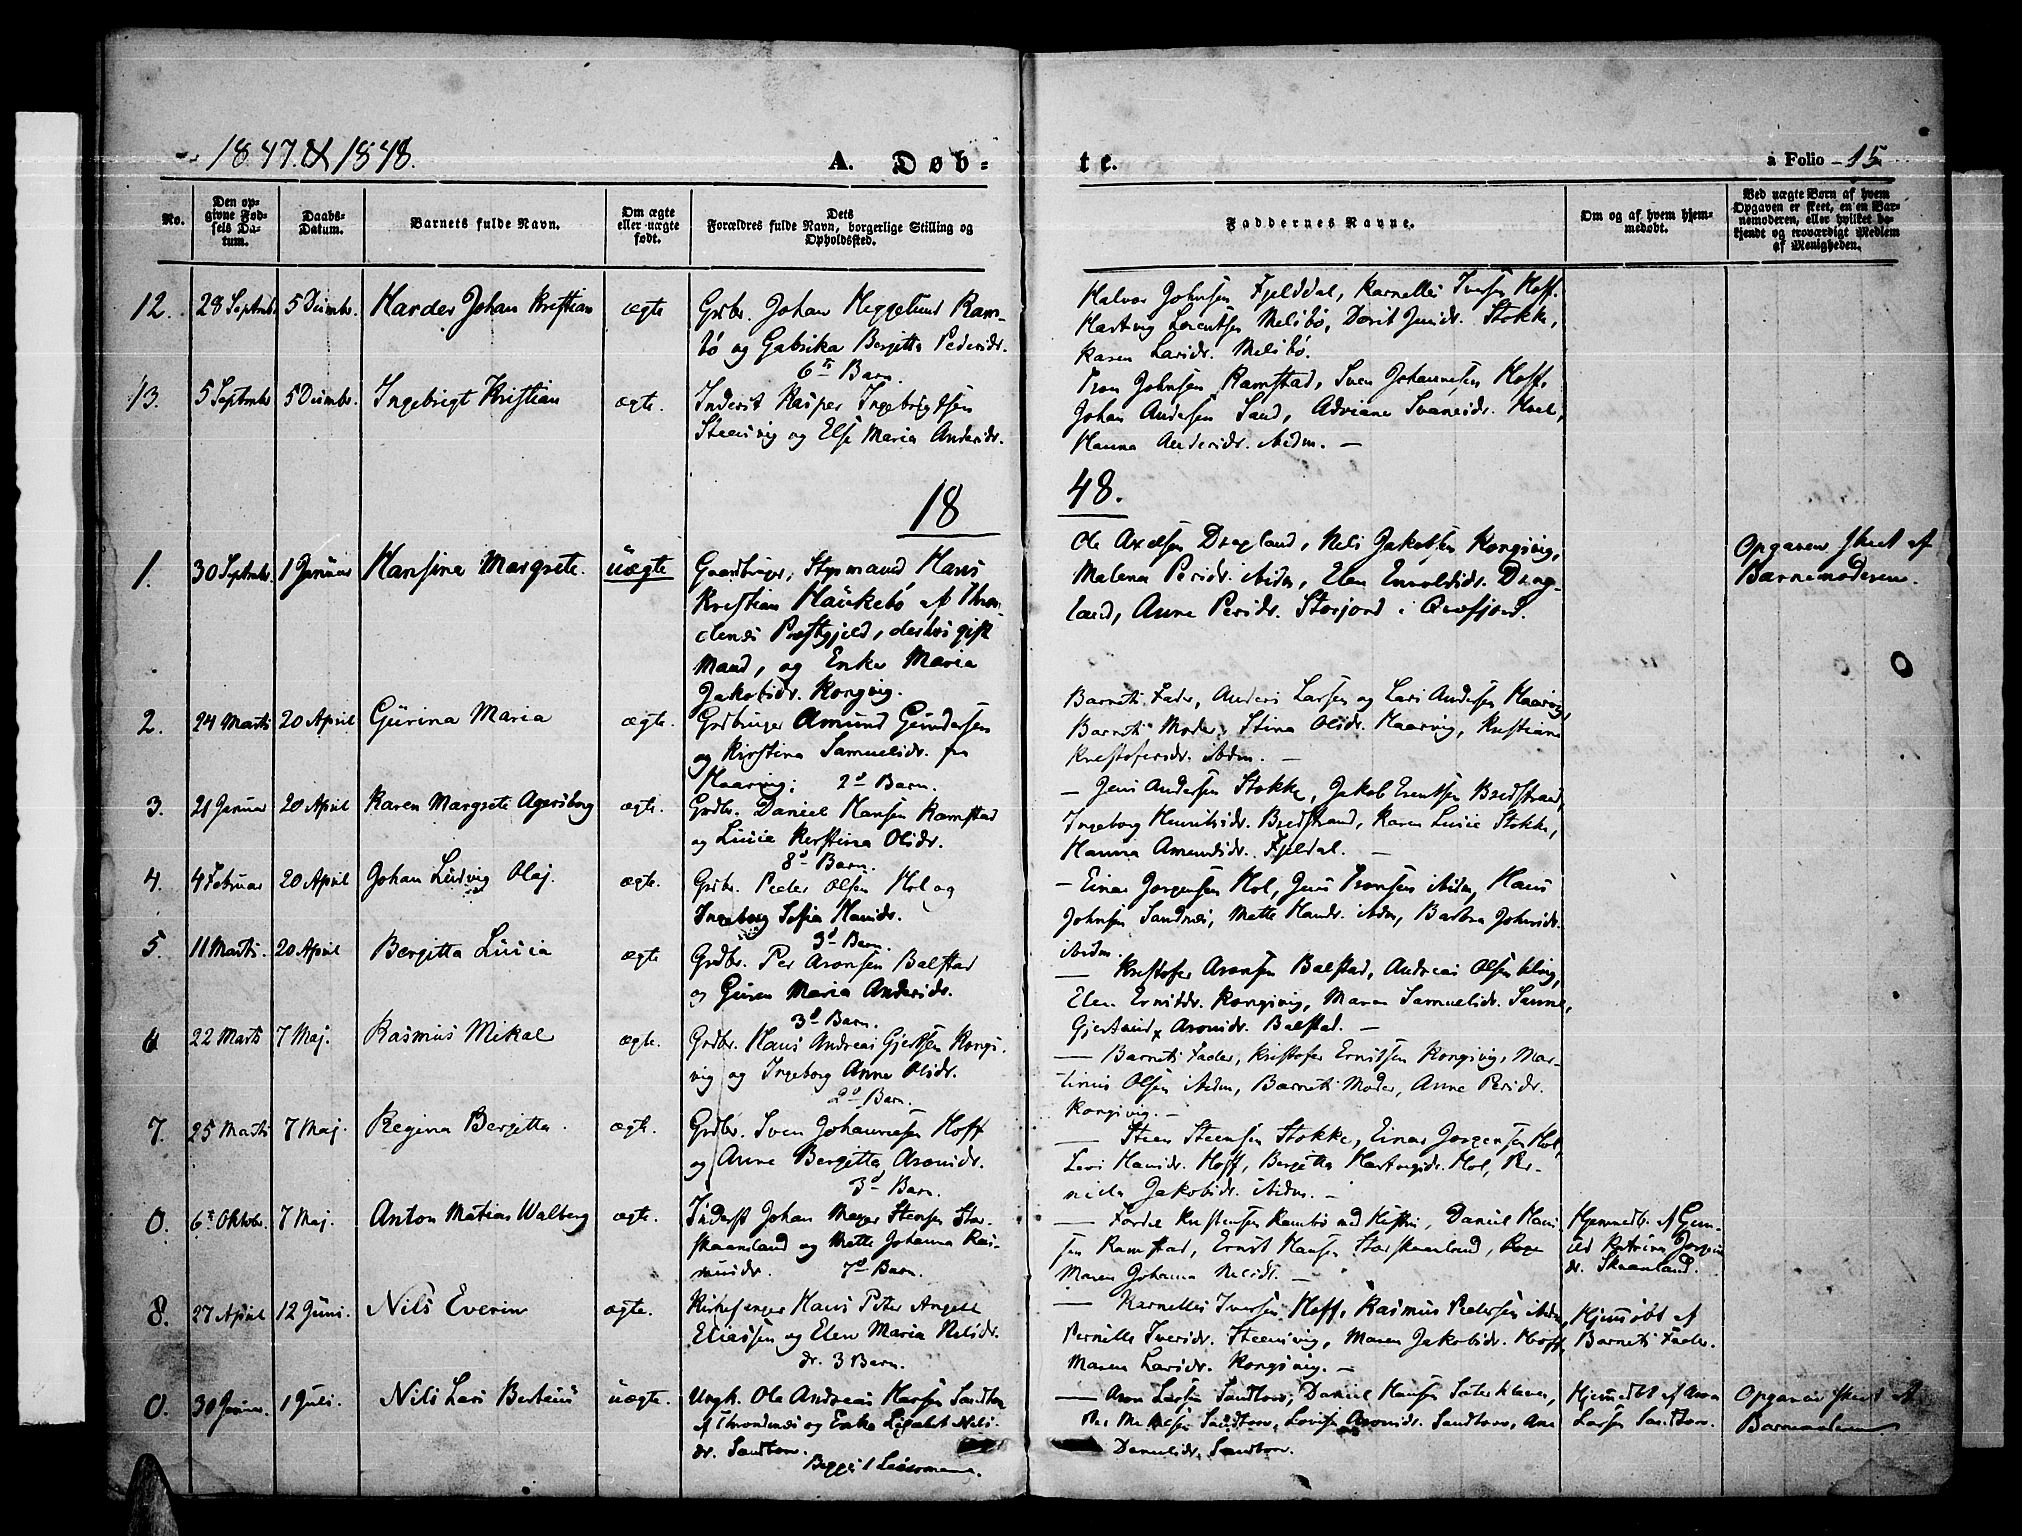 1847. & 1848.
A. Døb-
te.
à Folio 15
No.
Den op-
givne Fød-
sels Da-
tum.
Daabs-
Datum.
Barnets fulde Navn.
Om ægte
eller uægte
født.
Dets
Forældres fulde Navn, borgerlige Stilling og
Opholdssted.
Faddernes Navne.
Om og af hvem hjem-
medøbt.
Ved uægte Børn af hvem
Opgaven er skeet, en en Bar-
nemoderen, eller hvilket be-
kjendt og troværdigt Medlem
af Menigheden.
12. 28 Septmbr 5 Decmbr. Harder Johan Kristian ægte
Grdbr. Johan Heggelund Ram-
bø og Gabrika Bergitta Pedersdr.
6te Barn.
Halvor Johnsen Fjelddal, Karnelius Iversen Hoff.
Hartvig Lorentsen Melsbø, Dorit Jensdr. Stokke,
Karen Larsdr. Melsbø.
13. 5 Septmbr 5 Decmbr. Ingebrigt Kristian ægte.
Inderst Kasper Ingebrigtsen
Steensvig og Else Maria Andersdr.
Tron Johnsen Ramstad, Sven Johannesen Hoff,
Johan Andersen Sand, Adriane Svanesdr. Hol,
Hanna Andersdr. ibdm. —
18
48.
1. 30 Septmbr 1 Januar Hansina Margrete. uægte
Gaardbruger, Styrmand Hans
Kristian Haukebø af Thron-
denæs Præstgjeld, dertos gift
Mand, og Enke Maria
Jakobsdr. Kongsvig.
Ole Axelsen Dragland, Nils Jakobsen Kongsvig,
Malena Persdr. ibdm, Elen Enroldsdr. Drag-
land, Anne Persdr. Storjord i Qvæfjord.
Opgaven skeet af
Barnemoderen.
2. 24 Marts 20 April Gurina Maria ægte.
Grdbruger Amund Gundersen
og Kirstina Samuelsdr. fra
Haarvig; 2d Barn.
Barnets Fader, Anders Larsen og Lars Andersen Haarvig,
Barnets Moder, Stina Olsdr. Haarvig, Kristiane
Kristofersdr. ibdm. —
3. 21 Januar 20 April Karen Margrete Agersborg ægte.
Grdbr. Daniel Hansen Ramstad
og Lucie Kirstina Olsdr.
8d Barn.
— Jens Andersen Stokke, Jakob Erentsen Bredstrand,
Ingeborg Henriksdr. Bredstrand, Karen Lucie Stokke,
Hanna Amundsdr. Fjeldal. —
4. 4 Februar 20 April Johan Ludvig Olaj. ægte.
Grdbr. Peder Olsen Hol og
Ingeborg Sofia Hansdr.
3d Barn.
— Einar Jorgensen Hol, Jens Tronsen ibdm, Hans
Johnsen Sandnes, Mette Hansdr. ibdm, Barbra Johnsdr.
ibdm.
5. 11 Marts. 20 April Bergitta Lucia ægte
Grdbr. Per Aronsen Balstad
og Guren Maria Andersdr.
3d Barn.
— Kristofer Aronsen Balstad, Andreas Olsen
Elen Ernstdr. Kongsvig, Maren Samuelsdr. Sanne,
Gjertrud Aronsdr. Balstad. —
6 22 Marts 7 Maj. Rasmus Mikal ægte.
Grdbr. Hans Andreas Gjertsen Kongs-
vig og Ingeborg Anna Olsdr.
2d Barn.
— Barnets Fader, Kristofer Ernstsen Kongsvig, Mar-
tinus Olsen ibdm, Barnets Moder, Anne Persdr.
Kongsvig. —
7. 25 Marts 7 Maj. Regina Bergitta. ægte.
Grdbr. Sven Johannesen Hoff
og Anne Bergitta Aronsdr.
3d Barn.
— Steen Steensen Stokke, Einar Jorgensen Hol,
Levi Hansdr. Hoff, Bergitta Hartvigsdr. Hol, Per-
nille Jakobsdr. ibdm. —
0. 6te Oktobr. 7 Maj. Anton Matias Walberg ægte.
Inderst Johan Meyer Steensen Stor-
skaanland og Mette Johanna Ras-
musdr. 7d Barn.
— Fordel Kristensen Rambø med Hustru, Daniel Han-
sen Ramstad, Ernst Hansen Storskaanland, Pige
Maren Johanna Nilsdr. —
Hjemmedb. af
Katrina Jorgens
dr. Skaanland.
8. 27 April 12 Juni. Nils Everin ægte.
Kirkesanger Hans Peter Angell
Eliassen og Elen Maria Nilsdr.
dr. 3 Barn.
— Karnelius Iversen Hoff, Rasmus Pedersen ibdm,
Pernille Iversdr. Steensvig, Maren Jakobsdr. Hoff,
Maren Larsdr. Kongsvig. —
Hjemdøbt af
Barnets Fader.
0. 30 Januar. 1 Juli. Nils Lars Berteus uægte.
Ungk. Ole Andreas Larsen Sandtorv
af Throndenæs og Enke Lisabet Nils-
dr. Sandtorv.
Begges 1 Leiermaal.
— Aron Larsen Sandtorv, Daniel Hansen Sæterkleven,
Per Sandtorv, Lovise Aronsdr. Sandtorv, Ane
Danielsdr. Sandtorv.
Hjemmedbt af Aron
Larsen Sandtorv.
Opgaven skeet af
Barnemoderen